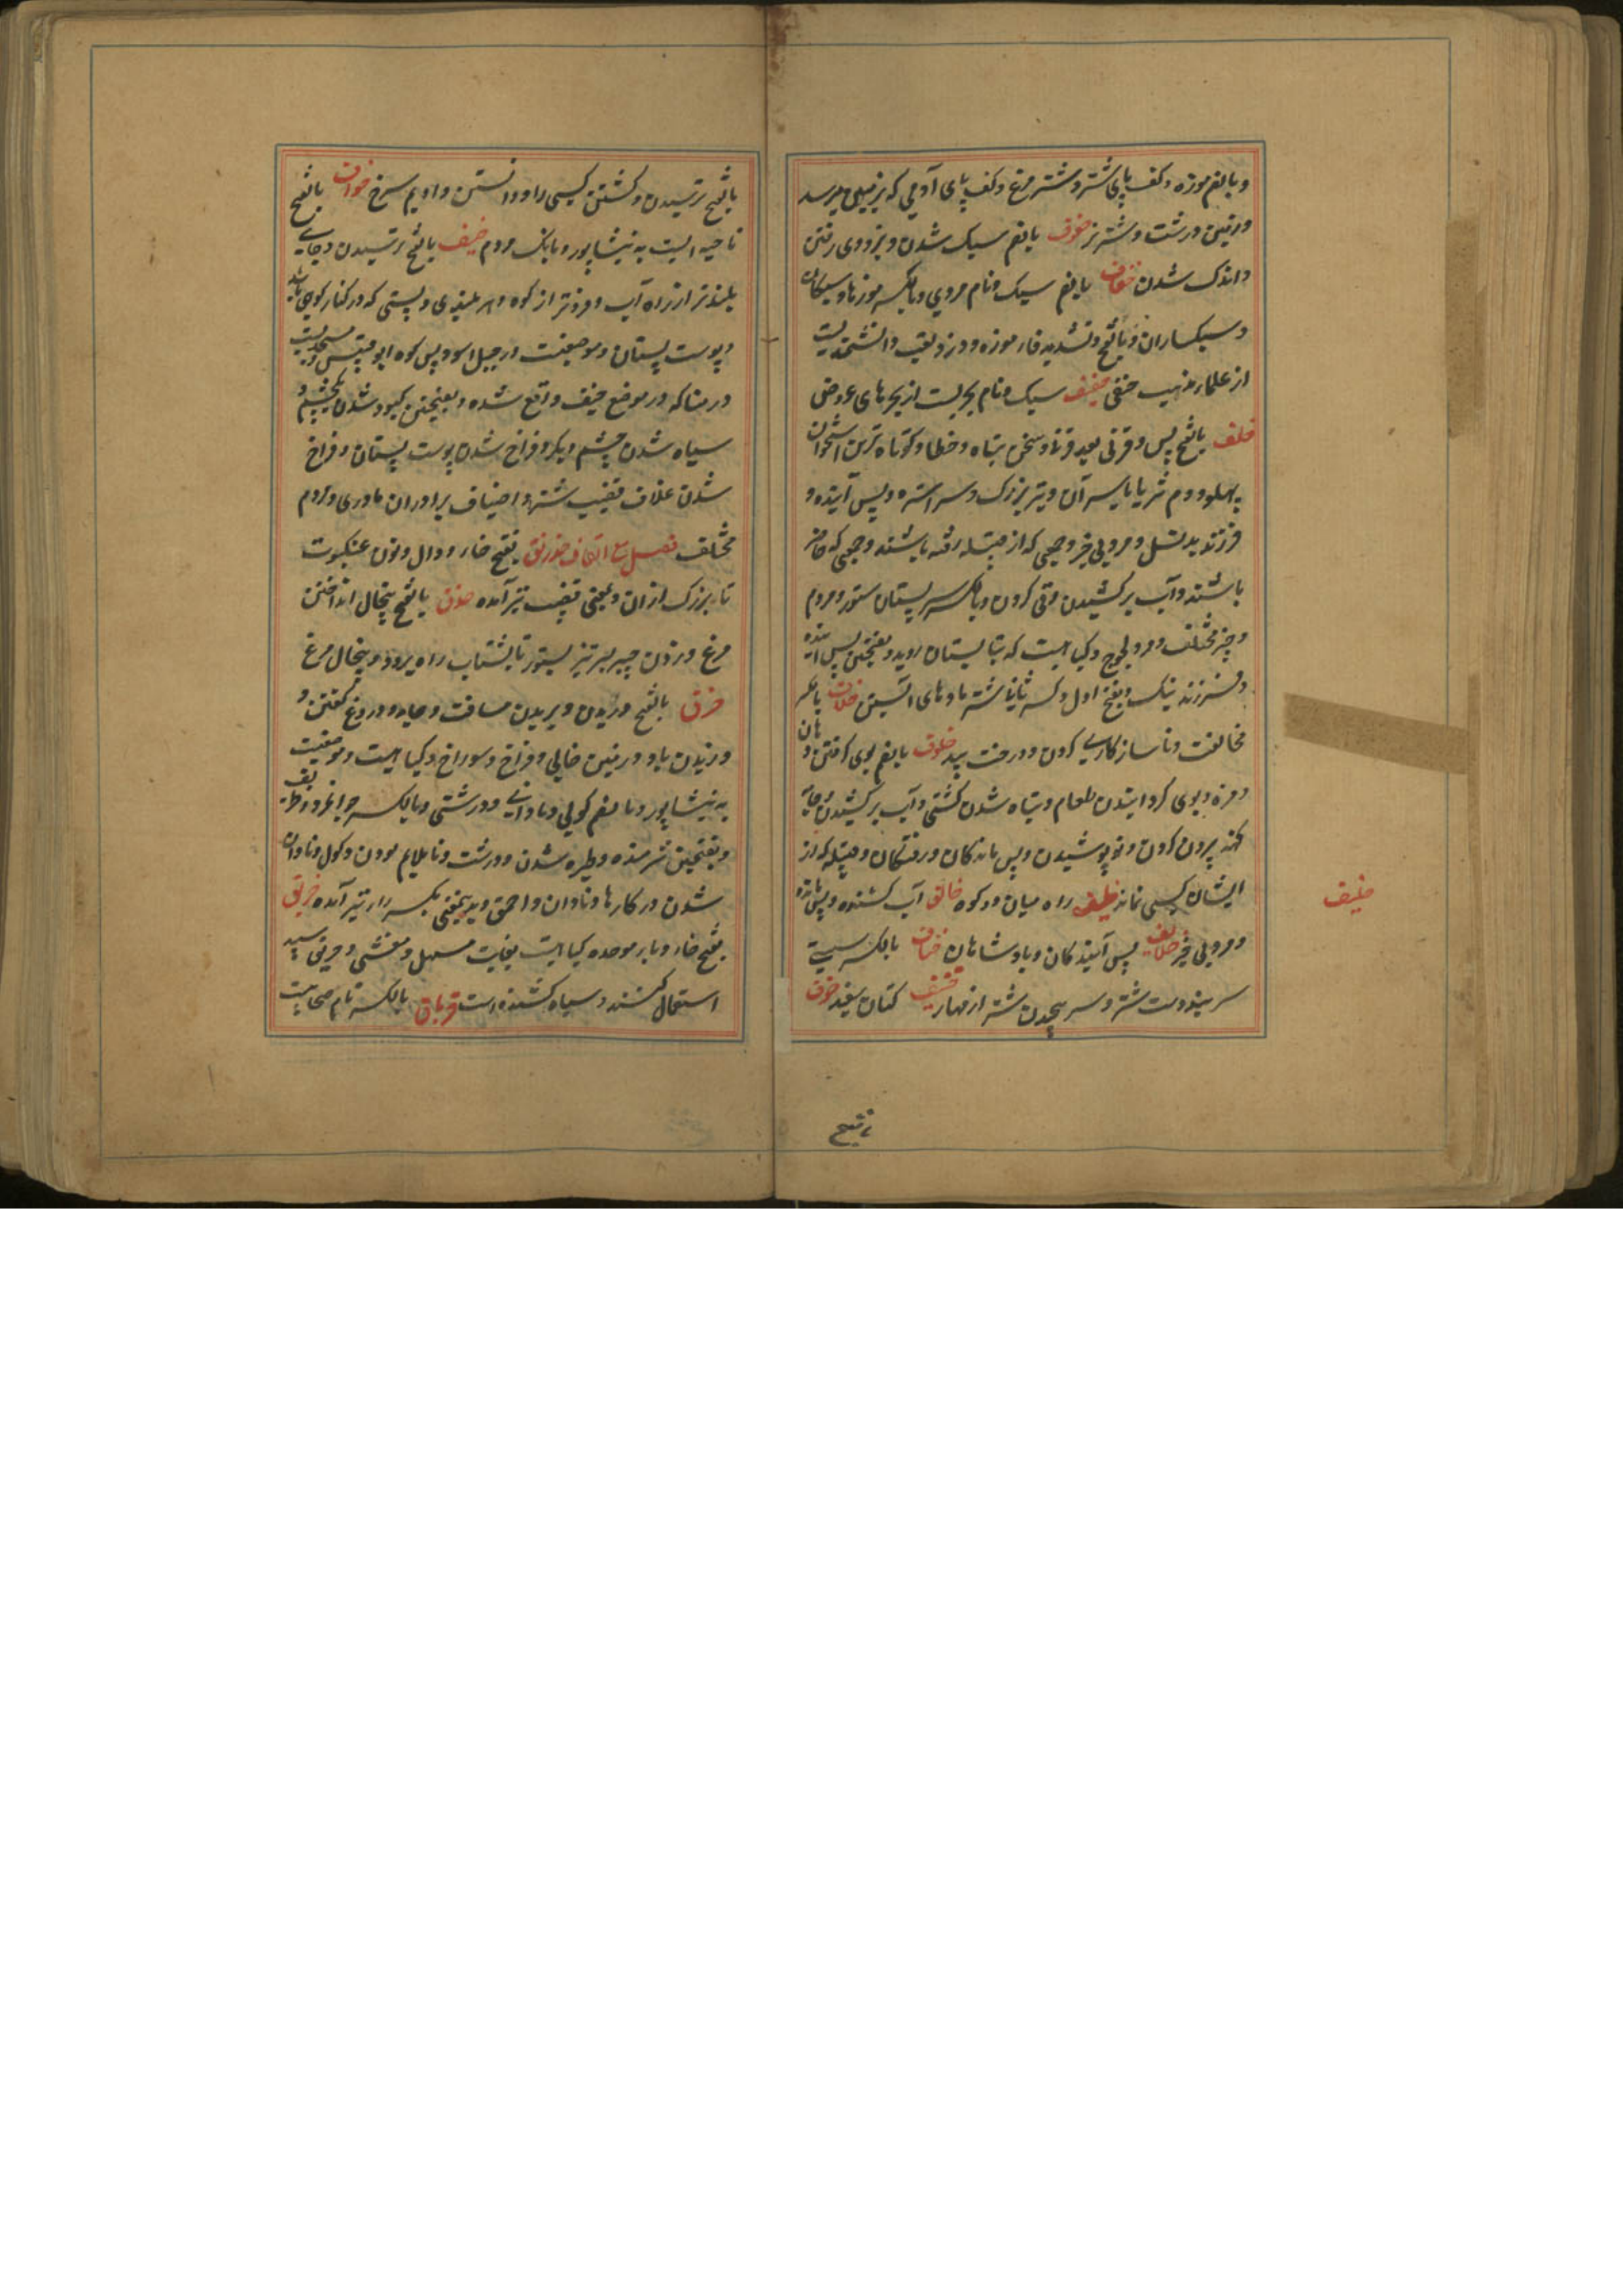 و بالضم موزه و کف پای شتر و شتر مرغ و کف پای آدمی که بزمین میرسد
و زمین درشت و شتر نر خفوف بالضم سبک شدن و بزودی رفتن
و اندک شدن خفاف بالضم سبک و نام مردی و بالکسر موزها و سبکان
و سبکساران و بالفتح و تشدید فاء موزه دوز و لقب دانشمندیست
از علماء مذهب حنفی خفیف سبک و نام بحریست از بحرهای عروضی
خلف بالفتح پس و قرنی بعد قرن و سخن تباه و خطا و کوتاه ترین استخوان
پهلو و دم تبر یا سر آن و تبر بزرک و سر استره و پس آینده و
فرزند بد نسل و مردبی خیر و جمعی که از قبیله رفته باشند و جمعی که حاضر
باشند و آب برکشیدن و قی کردن و بالکسر سر پستان ستور و مردم
و چیز مختلف و مرد لجوج و کیاهیست که بتابستان روید و بفتحتین پس آینده
و فرزند نیک و بفتح اول و کسر ثانی شتر ماده‌های آبستن خلاف بالکسر
مخالفت و ناسازکاری کردن و درخت بید خلوف بالضم بوی کرفتن دهان
و مزه و بوی کردانیدن طعام و تباه شدن کشتی و آب برکشیدن و جامه
کهنه بیرون کردن و نو پوشیدن و پس ماندکان و رفتکان و قبیله که از
ایشان کسی نماند خلیف راه میان دو کوه خالف آب کشنده و پس مانده
و مرد بی خیر خلایف پس آیندکان و پادشاهان خناف بالکسر سستی
سر بند دست شتر و سر پیچیدن شتر از مهار خنیف کتان سفید خوف
خلیف
بالفتح
بالفتح ترسیدن و کشتن کسی را و دانستن و ادیم سرخ خواف بالفتح
ناحیه ایست به نیشاپور و بانک مردم خیف بالفتح ترسیدن و جای
بلندتر از راه آب و فروتر از کوه و هر بلندی و پستی که در کنار کوهی باشد
و پوست پستان و موضعیست در جبل اسود پس کوه ابو قبیس و مسجدیست
در منا که در موضع خیف واقع شده و بفتحتین کبود شدن یکچشم و
سیاه شدن چشم دیکر و فراخ شدن پوست پستان و فراخ
شدن غلاف قضیب شتر و اخیاف برادران مادری و مردم
مختلف فصل مع القاف خدرنق بفتح خاء و دال و نون عنکبوت
نار بزرک ازان و بمعنی قضیب نیز آمده خذق بالفتح پنجال انداختن
مرغ و زدن چیز تیز بستور تا بشتاب راه برود و پنجال مرغ
خرق بالفتح دریدن و بریدن مسافت و جامه و دروغ کفتن و
وزیدن باد و زمین خالی و فراخ و سوراخ و کیاهیست و موضعیست
به نیشاپور و بالضم کولی و نادانی و درشتی و بالکسر جوانمرد و ظریف
و بفتحتین شرمنده و طیره شدن و درشت و نا ملایم بودن و کول و نادان
شدن در کارها و نادان و احمق و بدینمعنی بکسر راء نیز آمده خربق
بفتح خاء و باء موحده کیاهیست بغایت مسهل و مقئی سپید
استعمال کنند و سیاه کشنده است خرباق بالکسر نام صحابیست